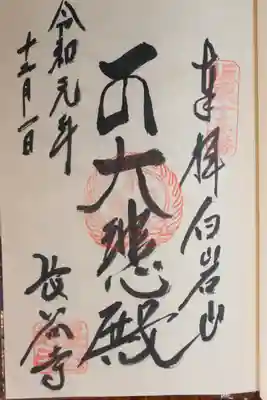 奉拝白岩山
大悲殿
長谷寺
令和元年
十二月一日